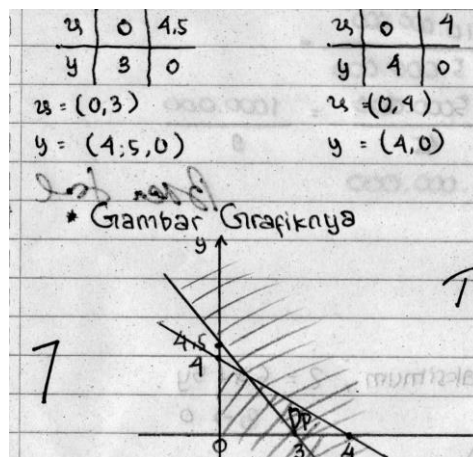 x 0 4,5
y 3 0
x 0 4
y 4 0
x = (0,3)
y = (4,5,0)
x = (0,4)
y = (4,0)
* Gambar Grafiknya
y
4,5
4
7
Dp
0 3 4